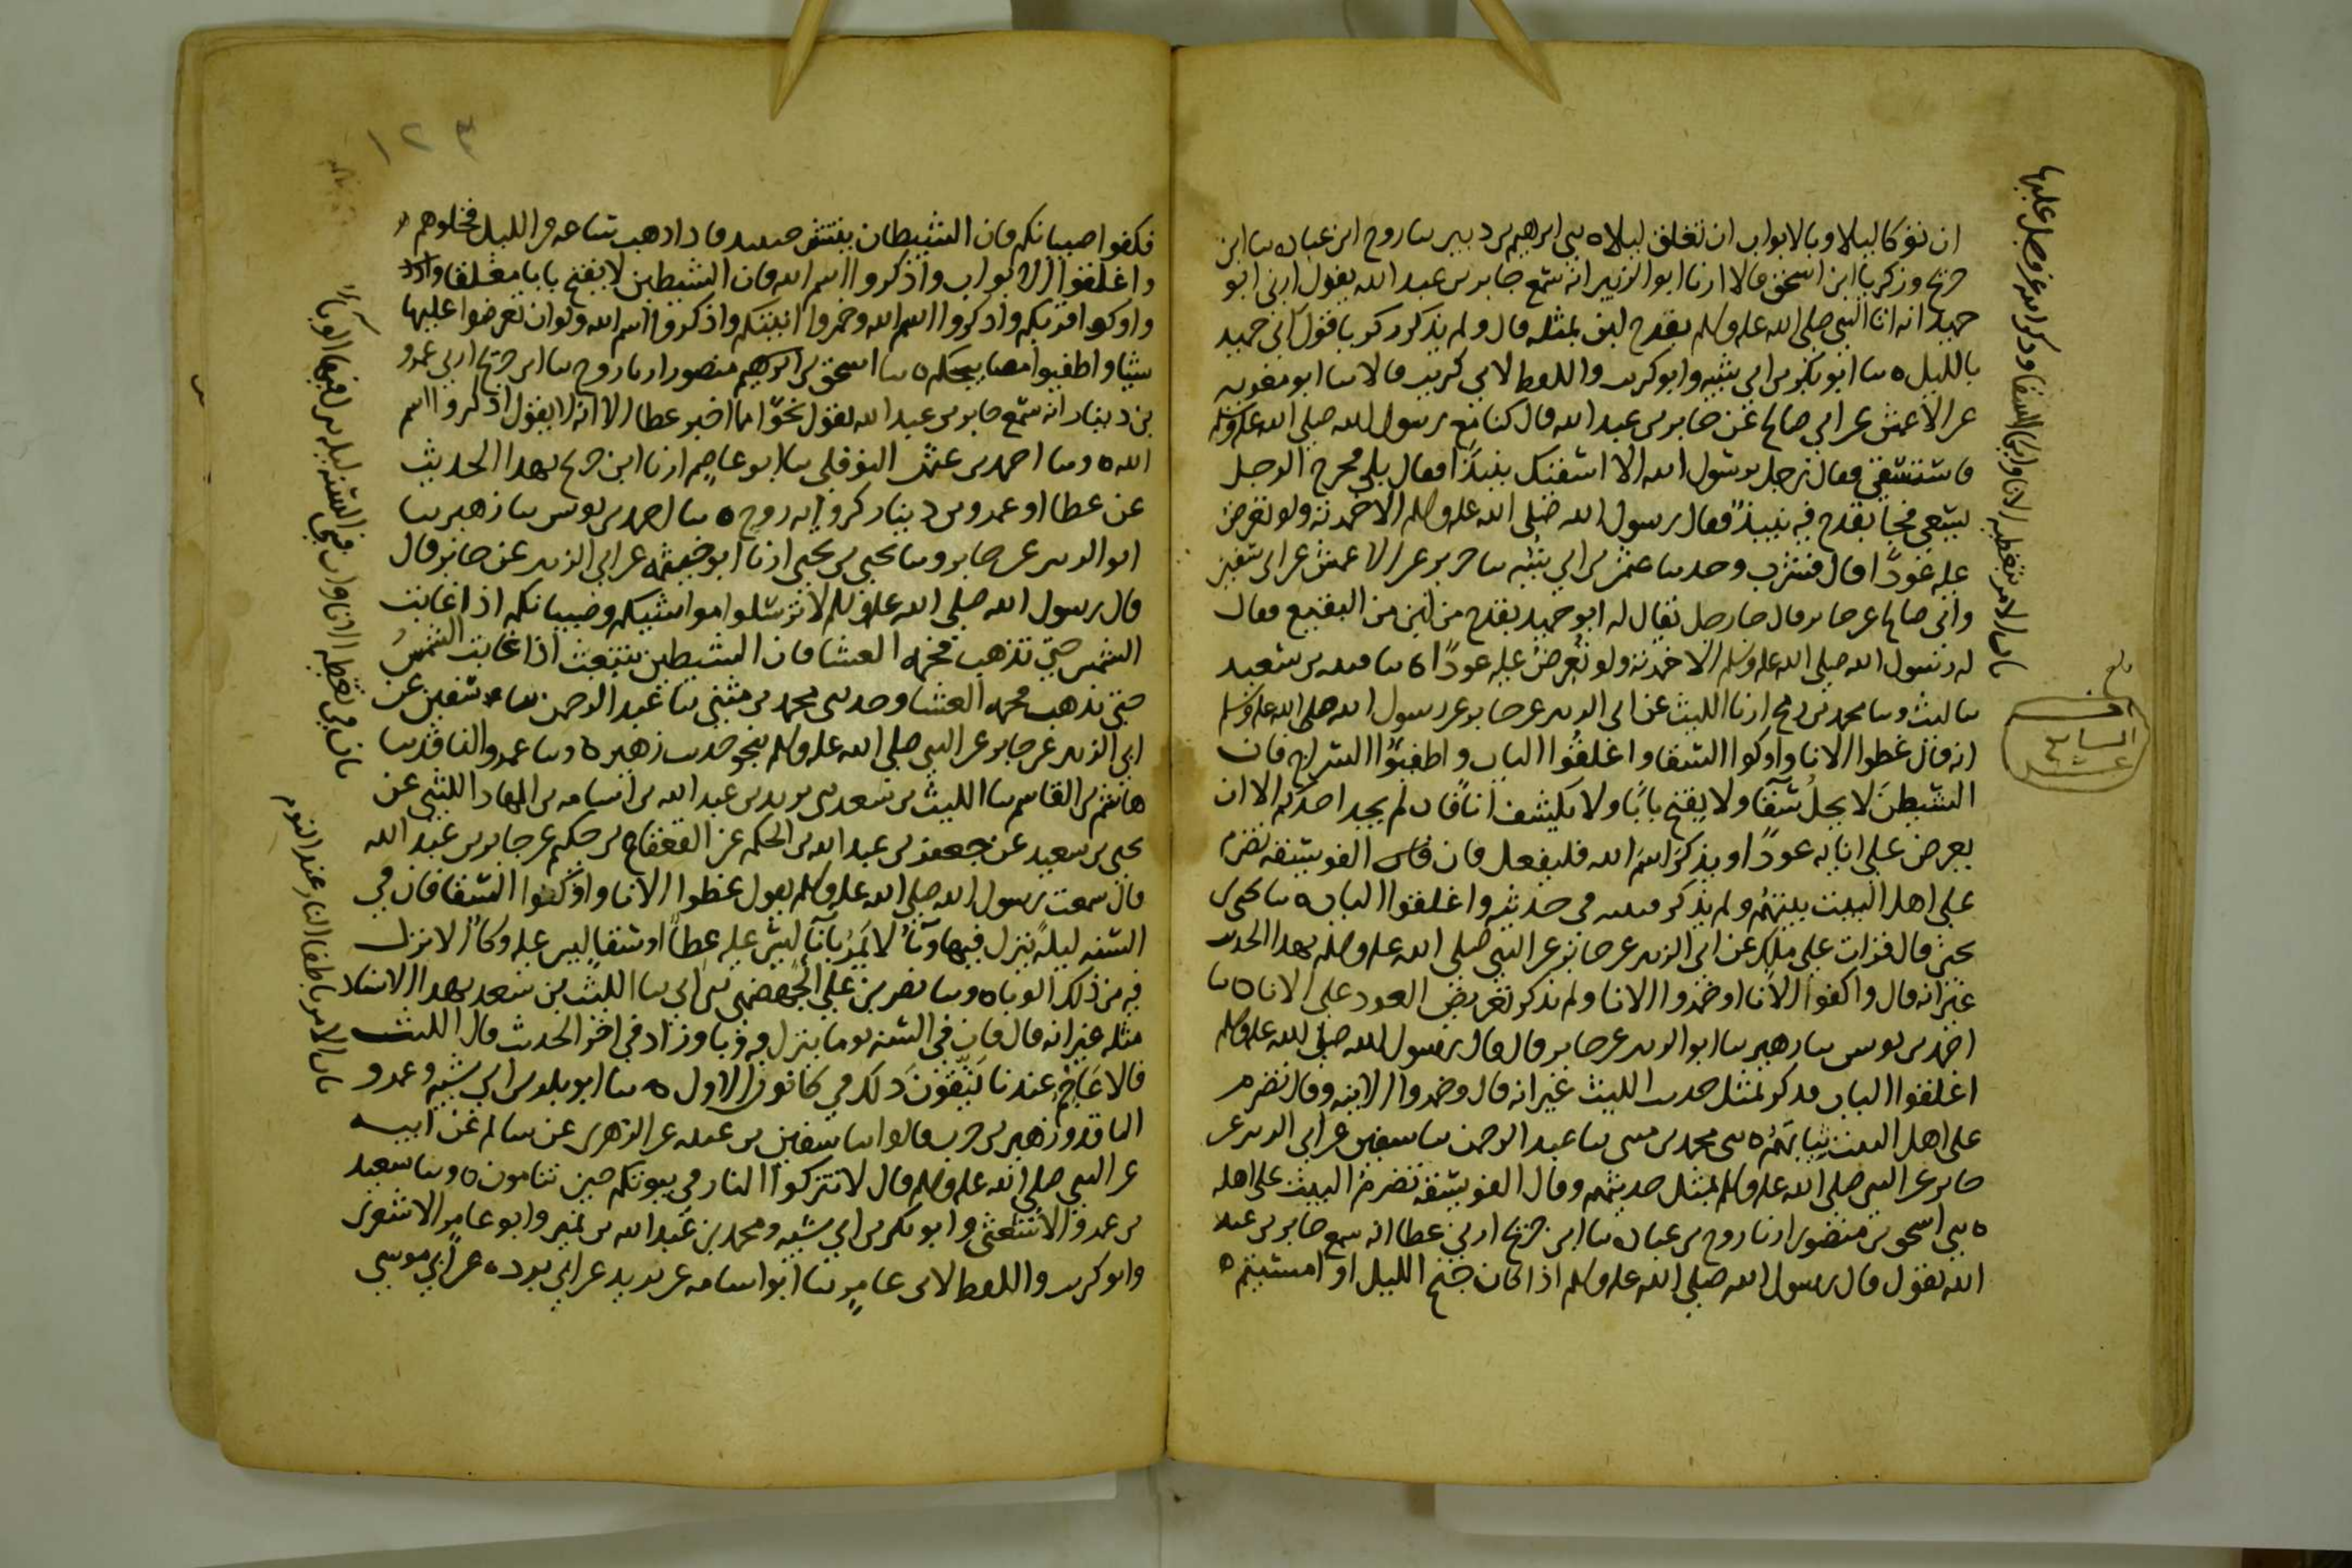 ان توكا ليلا وبالابواب ان تغلق ليلا ه سى ابراهيم بن دينر سا روح ابن عباده سا ابن
جريج وزكريا ابن اسحق قالا ارنا ابو الزبير انه سمع جابر بن عبد الله يقول ارنى ابو
حميد انه اتا النبي صلى الله عليه وسلم بقدح لبن بمثله قال ولم يذكر زكريا قول ابي حميد
بالليل ه سا ابو بكر بن ابي شيبه وابو كريب واللفظ لابي كريب قالا سا ابو معويه
عن الاعمش عن ابي صالح عن جابر بن عبد الله قال كنا مع رسول الله صلى الله عليه وسلم
فاستسقى فقال رجل يرسول الله الا اسقيك نبيذا فقال بلى فخرج الرجل
يسعى فجا بقدح فيه نبيذ فقال رسول الله صلى الله عليه وسلم الا خمرته ولو تعرض
عليه عودا قال فشرب وحدسا عثمن بن ابي شيبه سا جرير عن الاعمش عن ابي سفين
وابي صالح عن جابر قال جا رجل يقال له ابو حميد بقدح من لبن من النقيع فقال
له رسول الله صلى الله عليه وسلم الا خمرته ولو تعرض عليه عودا ه سا قتيبه بن سعيد
سا ليث وسا محمد بن رمح ارنا الليث عن ابي الزبير عن جابر عن رسول الله صلى الله عليه وسلم
انه قال غطوا الانا واوكوا السقا واغلقوا الباب واطفئوا السراج فان
الشيطن لا يحل سقا ولا يفتح بابا ولا يكشف انا فان لم يجد احدكم الا ان
يعرض على انايه عودا او يذكر اسم الله فليفعل فان الفويسقه تضرم
على اهل البيت بيتهم ولم يذكر قتيبه في حديثه واغلقوا الباب ه سا يحيى بن
يحيى قال قرات على ملك عن ابي الزبير عن جابر عن النبي صلى الله عليه وسلم بهذا الحديث
غير انه قال واكفوا الانا او خمروا الانا ولم يذكر تعريض العود على الانا ه سا
احمد بن يونس سا زهير سا ابو الزبير عن جابر قال قال رسول الله صلى الله عليه وسلم
اغلقوا الباب فذكر بمثل حديث الليث غير انه قال وخمروا الانيه وقال تضرم
على اهل البيت ثيابهم ه سى محمد بن مثنى سا عبد الرحمن سا سفين عن ابي الزبير عن
جابر عن النبي صلى الله عليه وسلم بمثل حديثهم وقال الفويسقه تضرم البيت على اهله
ه سى اسحق بن منصور ارنا روح بن عباده سا ابن جريج ارني عطا انه سمع جابر بن عبد
الله يقول قال رسول الله صلى الله عليه وسلم اذا كان جنح الليل او امسيتم ه
باب الامر بتغطيه الانا وايكا السقا وذكر الله عز وجل عليها
السابع
عشر
١٢٣
فكفوا صبيانكم فان الشيطان ينتشر حينئذ فاذا ذهب ساعه من الليل فخلوهم
واغلقوا الابواب واذكروا اسم الله فان الشيطن لا يفتح بابا مغلقا
واوكوا قربكم واذكروا اسم الله وخمروا انيتكم واذكروا اسم الله ولو ان تعرضوا عليها
شيا واطفيوا مصابيحكم ه سا اسحق بن ابراهيم منصور ارنا روح سا ابن جريج ارنى عمرو
بن دينار انه سمع جابر بن عبد الله يقول نحوا مما اخبر عطا الا انه لا يقول اذكروا اسم
الله ه وسا احمد بن عثمن النوفلي سا ابو عاصم ارنا ابن جريج بهذا الحديث
عن عطا او عمرو بن دينار كروايه روح ه سا احمد بن يونس سا زهير سا
ابو الزبير عن جابر وسا يحيى بن يحيى ارنا ابو خيثمه عن ابي الزبير عن جابر قال
قال رسول الله صلى الله عليه وسلم لا ترسلوا مواشيكم وصبيانكم اذا غابت
الشمس حتى تذهب فحمه العشا فان الشيطين تنبعث اذا غابت الشمس
حتى تذهب فحمه العشا وحدسى محمد بن مثنى سا عبد الرحمن سا سفين عن
ابي الزبير عن جابر عن النبي صلى الله عليه وسلم بنحو حديث زهير ه وسا عمرو الناقد سا
هاشم بن القاسم سا الليث بن سعد سى يزيد بن عبد الله بن اسامه بن الهاد الليثي عن
يحيى بن سعيد عن جعفر بن عبد الله بن الحكم عن القعقاع بن حكيم عن جابر بن عبد الله
قال سمعت رسول الله صلى الله عليه وسلم يقول غطوا الانا واوكوا السقا فان في
السنه ليله ينزل فيها وبا لا يمر بانا ليس عليه غطا او سقا ليس عليه وكا الا نزل
فيه من ذلك الوبا ه وسا نصر بن علي الجهضمي سى ابي سا الليث بن سعد بهذا الاسناد
مثله غير انه قال فان في السنه يوما ينزل فيه وبا وزاد في اخر الحديث قال الليث
فالاعاجم عندنا يتقون ذلك في كانون الاول ه سا ابو بكر بن ابي شيبه وعمرو
الناقد وزهير بن حرب قالوا سا سفين بن عيينه عن الزهري عن سالم عن ابيه
عن النبي صلى الله عليه وسلم قال لا تتركوا النار في بيوتكم حين تنامون ه وسا سعيد
بن عمرو الاشعثي وابو بكر بن ابي شيبه ومحمد بن عبد الله بن نمير وابو عامر الاشعري
وابو كريب واللفظ لابي عامر سا ابو اسامه عن بريد عن ابي برده عن ابي موسى
باب في تغطيه الانا وان في السنه ليله ينزل فيها الوبا
باب الامر باطفا النار عند النوم